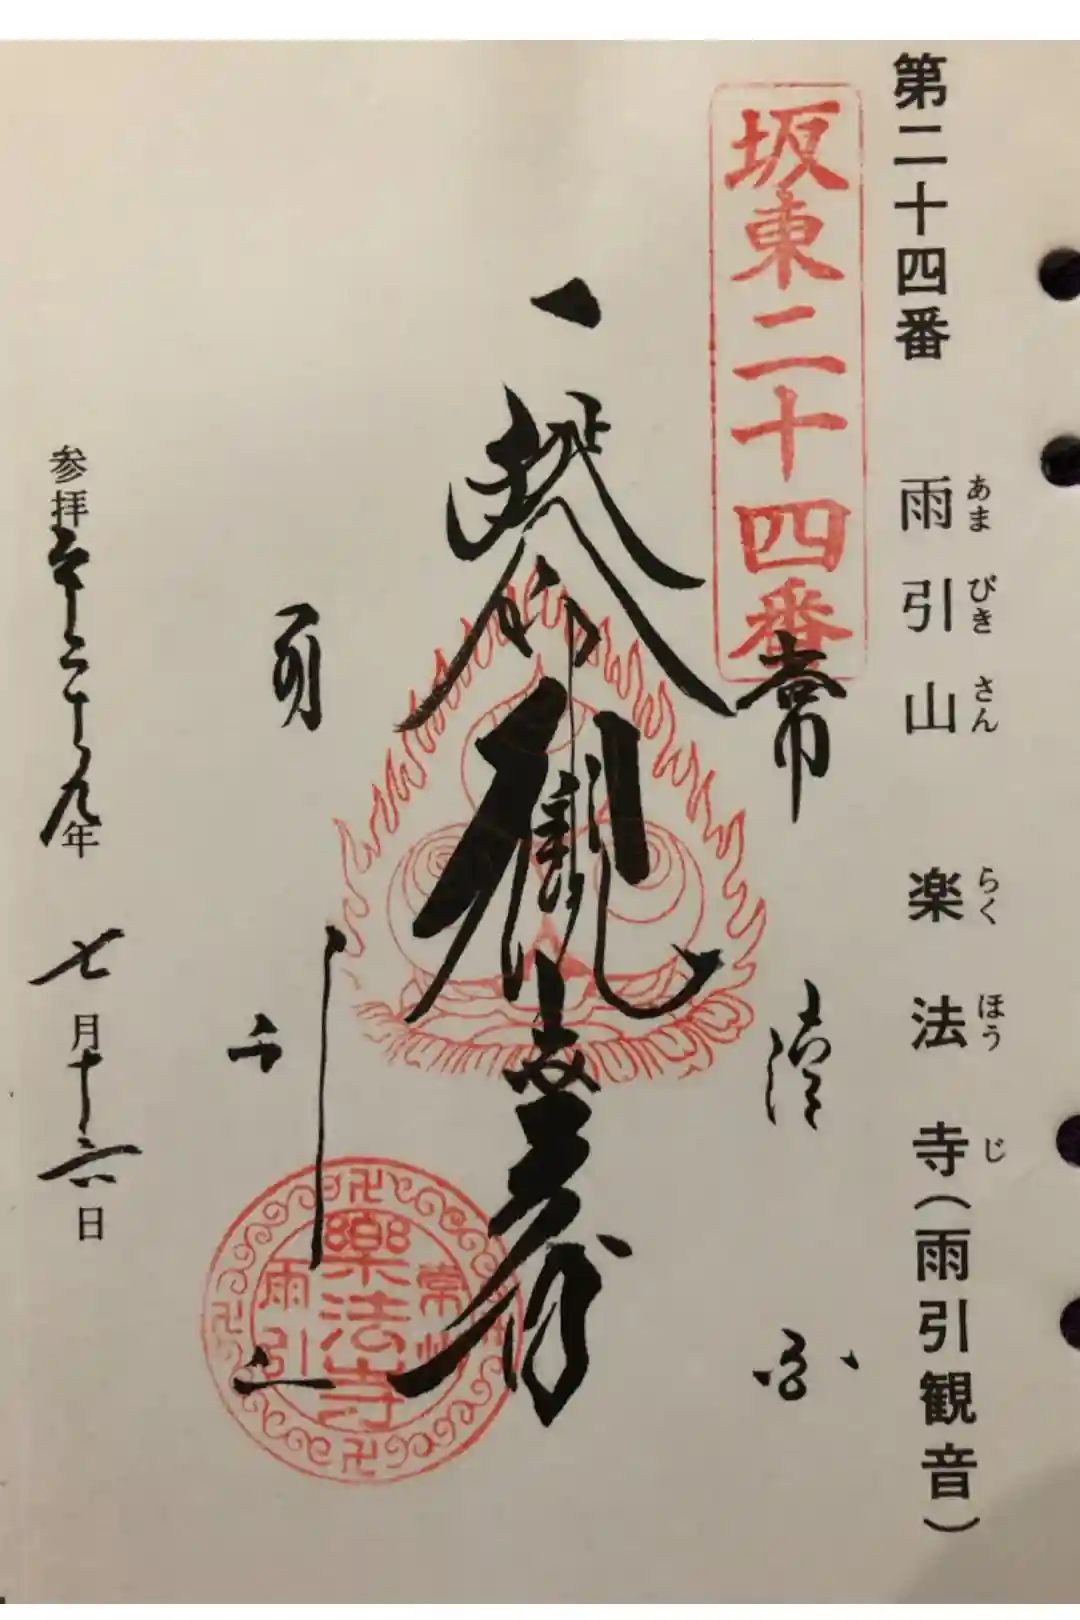 第二十四番 雨引山 楽法寺(雨引観音)
あま びき さん らく ほう じ
坂東二十四番
常陸国
観世音
雨引山
参拝平成二十九年 七月十六日
常州
樂法寺
雨引